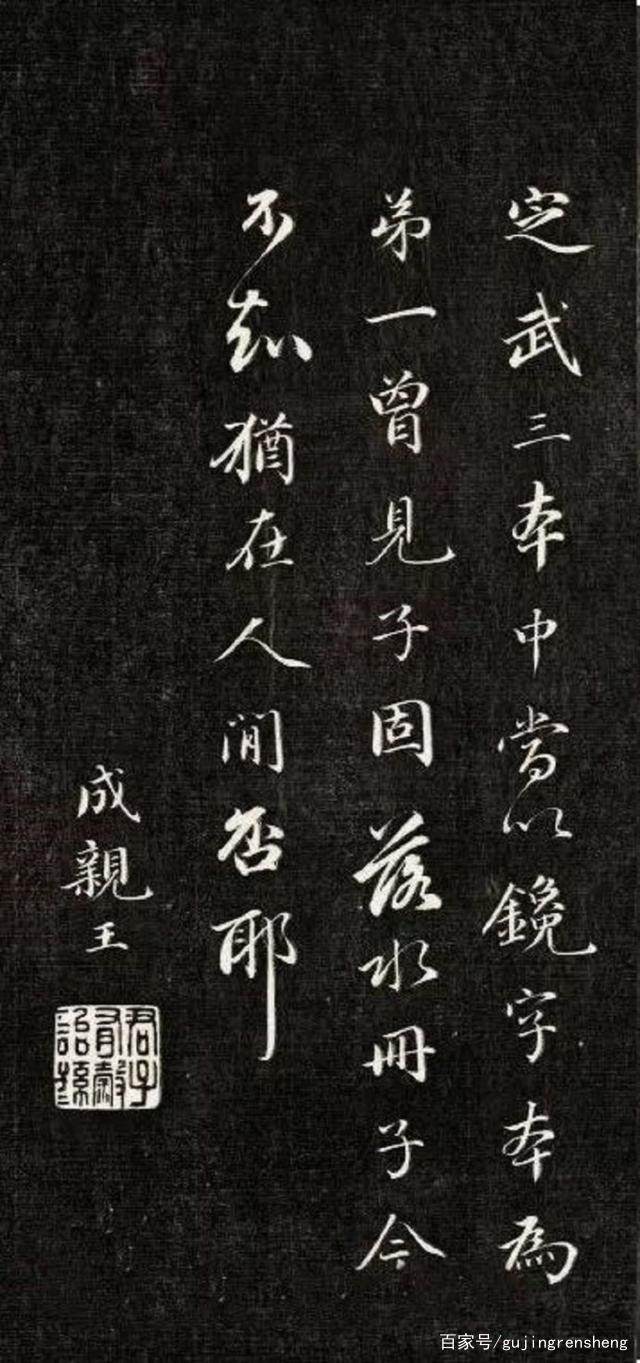 定武三本中當以鑱字本為
弟一曾見子固落水冊子今
不知猶在人間否耶
成親王
百家号/gujingrensheng